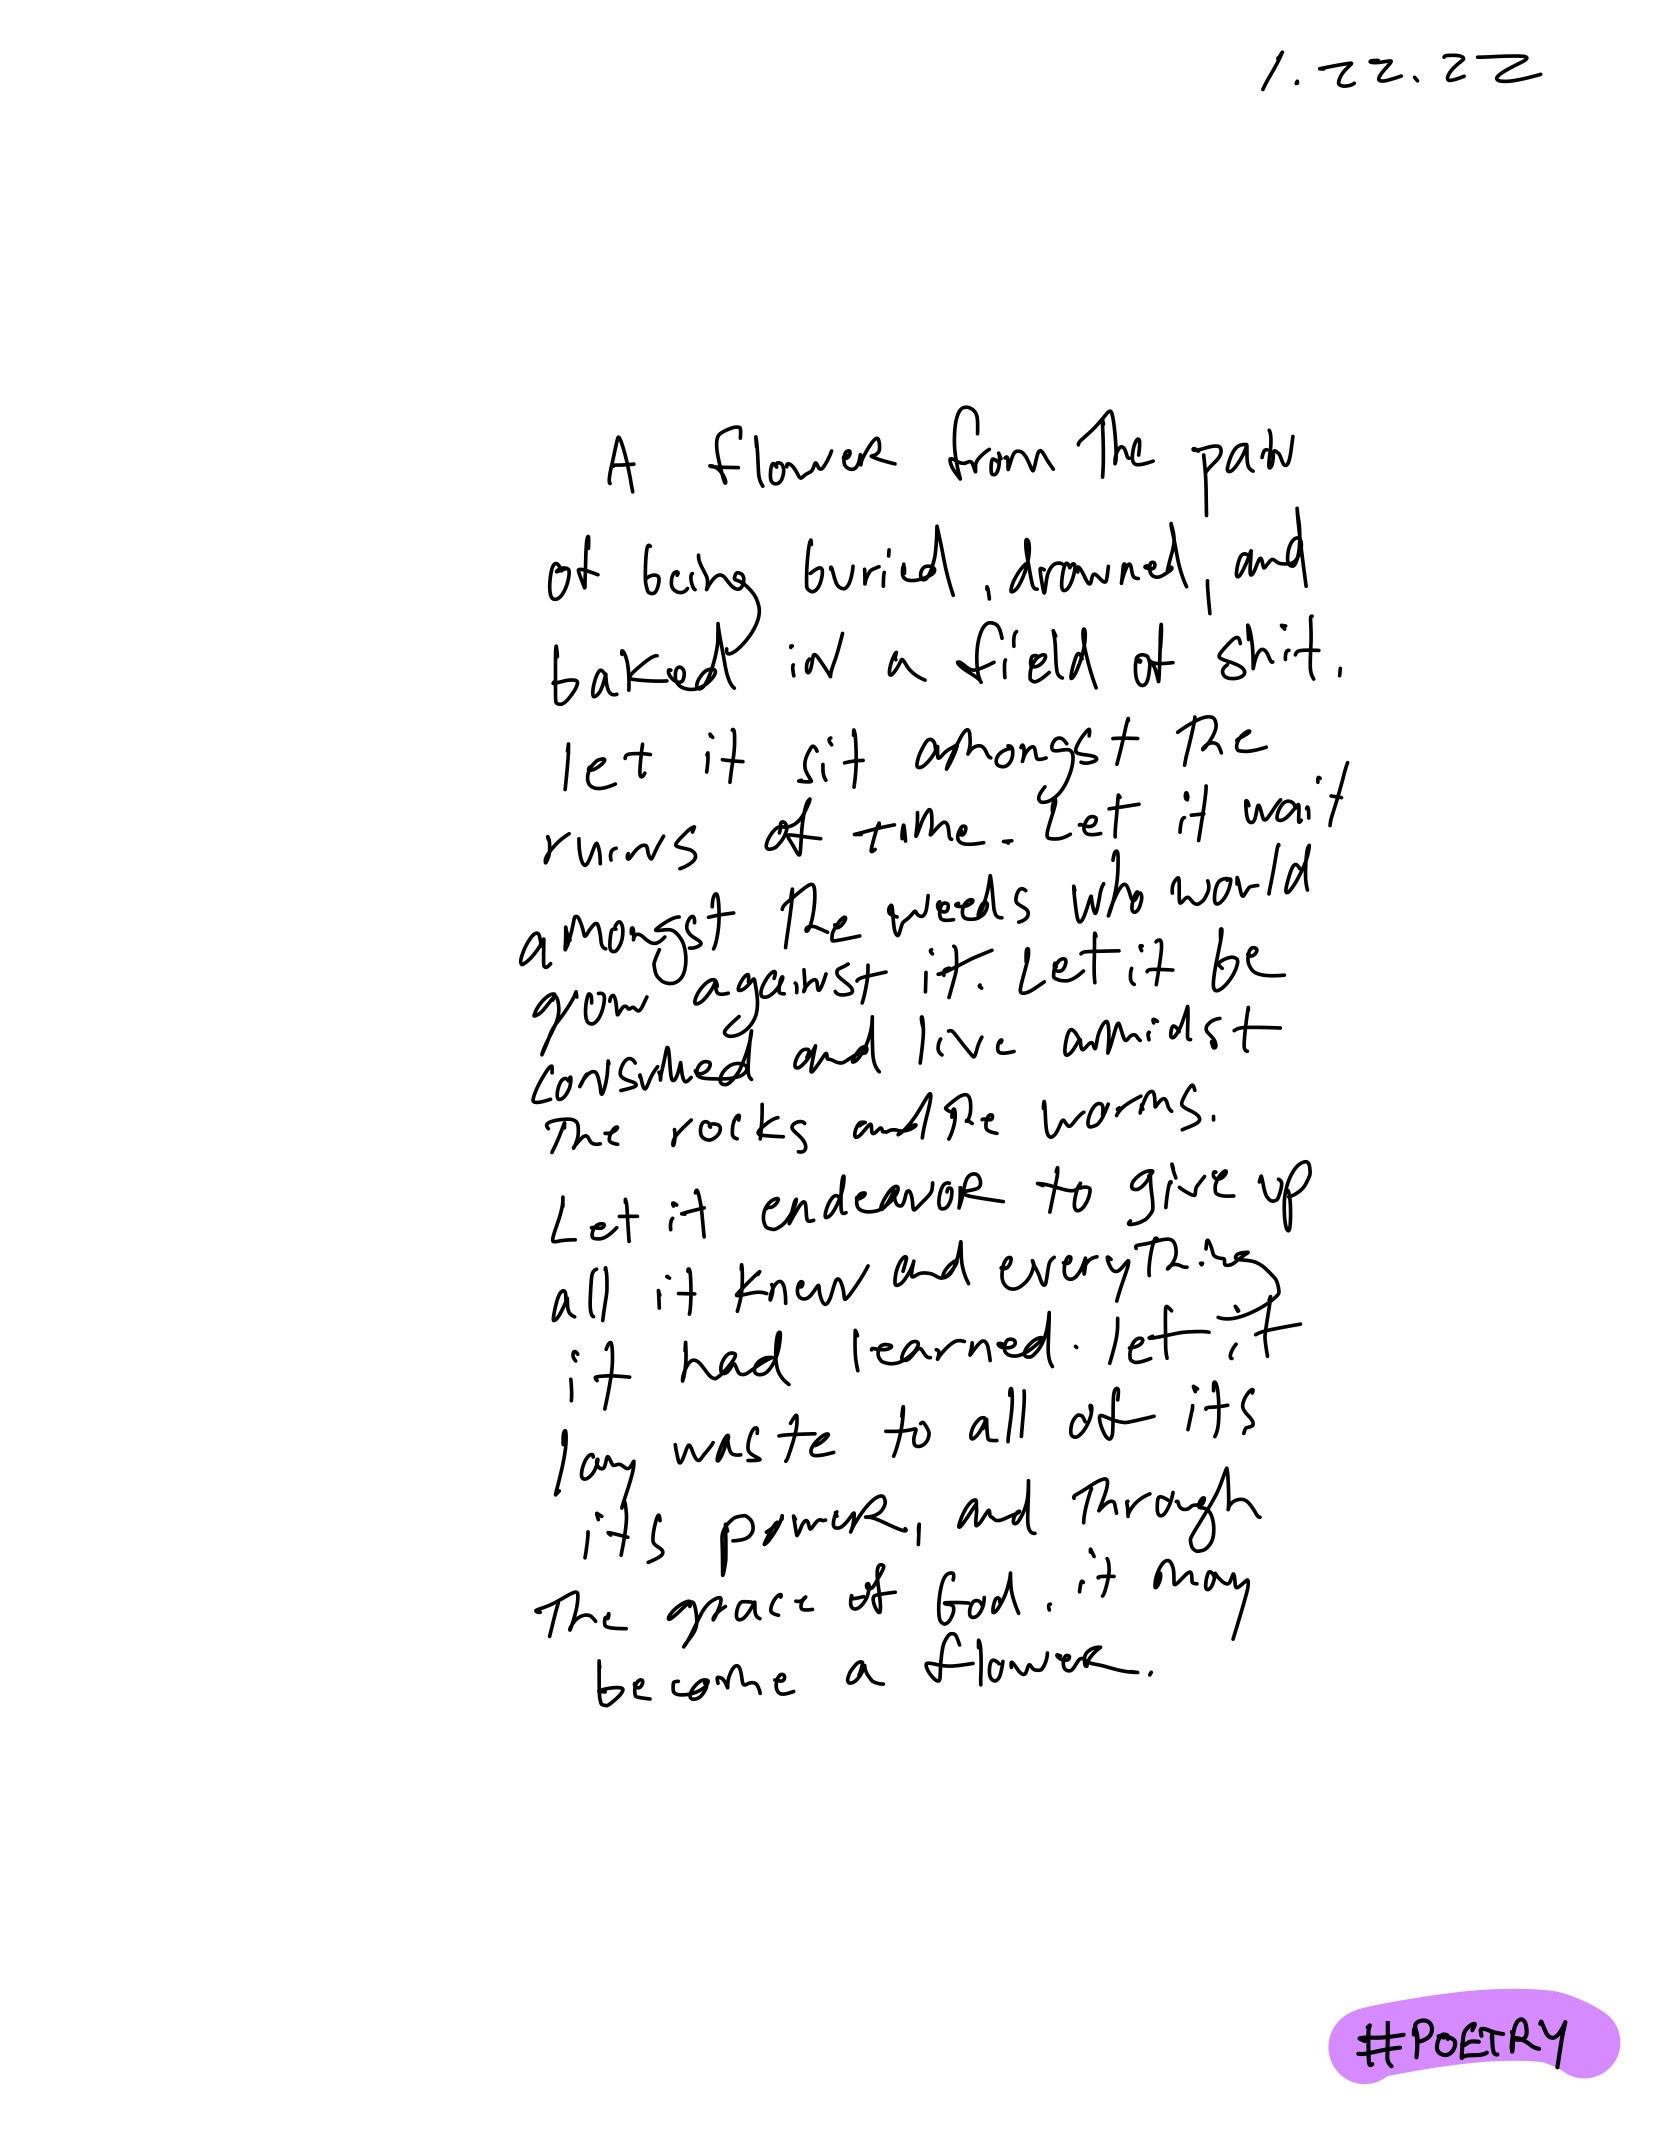 1.22.22
A flower from the pain
of being buried, drowned, and
baked in a field of shit.
let it sit amongst the
ruins of time. Let it wait
amongst the weeds who would
grow against it. Let it be
consumed and live amidst
The rocks and the worms.
Let it endeavor to give up
all it knew and everything
it had learned. let it
lay waste to all of its
its power, and through
The grace of God. it may
become a flower.
#POETRY